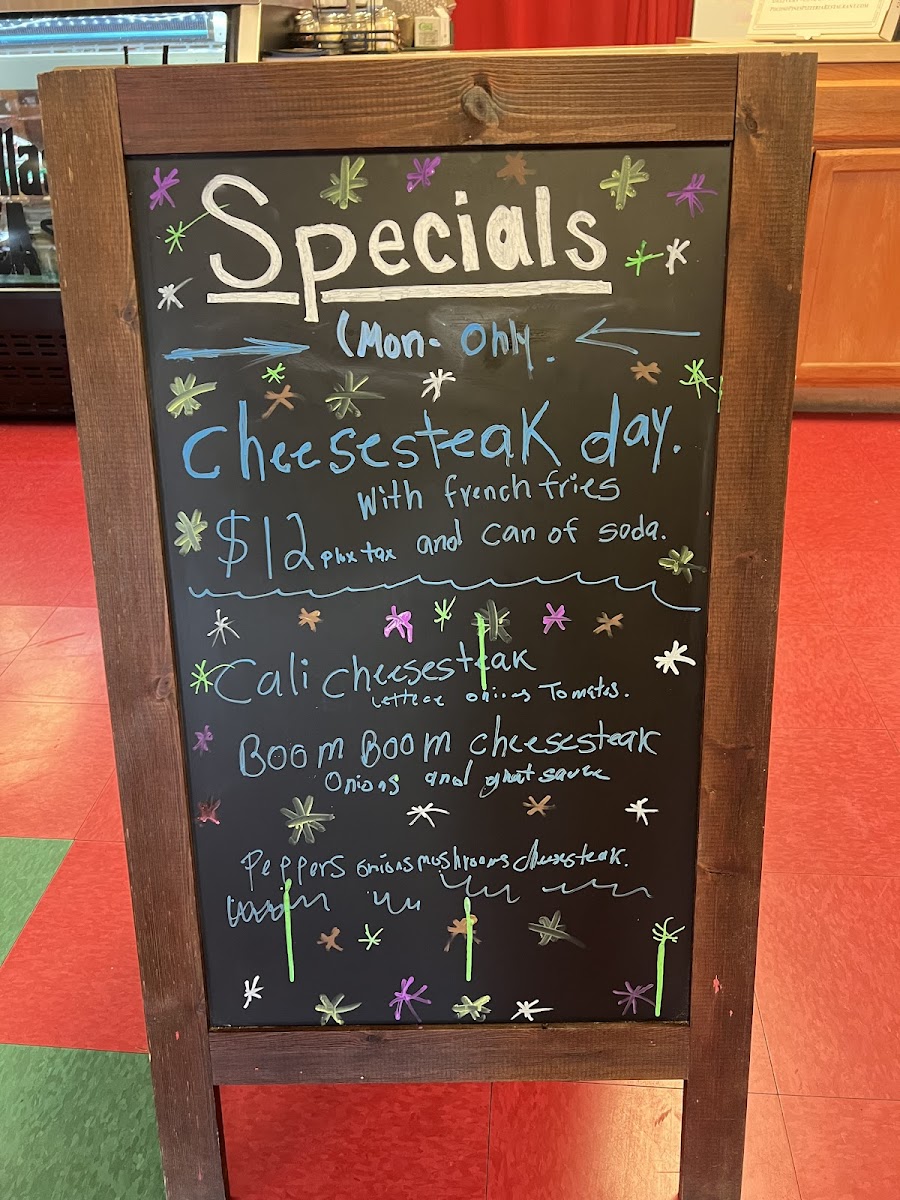 Specials
(Mon- Only.
Cheesesteak day.
with french fries
$12 plux tax and can of soda.
Cali cheesesteak
lettece onions Tomatos.
Boom Boom cheesesteak
Onions and ghat sauce
Peppers onions mushrooms cheesesteak.